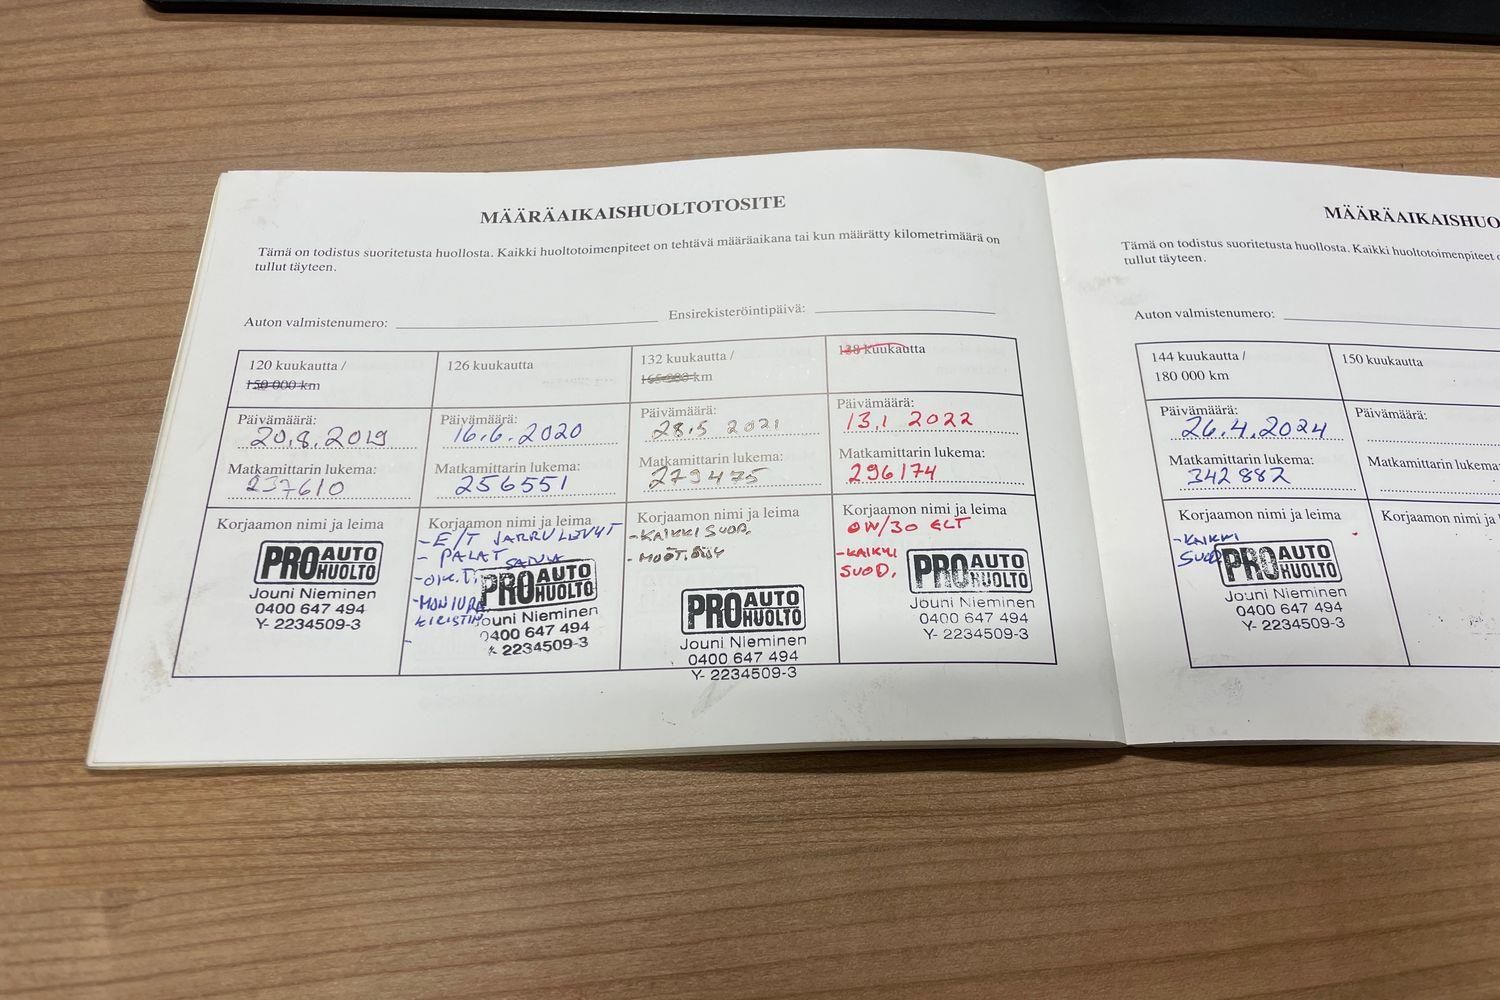 MÄÄRÄAIKAISHUOLTOTOSITE
Tämä on todistus suoritetusta huollosta. Kaikki huoltotoimenpiteet on tehtävä määräaikana tai kun määrätty kilometrimäärä on
tullut täyteen.
Auton valmistenumero:
Ensirekisteröintipäivä:
120 kuukautta /
150 000 km
Päivämäärä:
20.8.2019
Matkamittarin lukema:
237610
Korjaamon nimi ja leima
PRO AUTO HUOLTO
Jouni Nieminen
0400 647 494
Y- 2234509-3
126 kuukautta
Päivämäärä:
16.6.2020
Matkamittarin lukema:
256551
Korjaamon nimi ja leima
- E/T JARRULEVYT
- PALAT
PRO AUTO HUOLTO
Jouni Nieminen
0400 647 494
2234509-3
132 kuukautta /
165 000 km
Päivämäärä:
28.5 2021
Matkamittarin lukema:
279475
Korjaamon nimi ja leima
- KAIKKI SUOD.
- MOOT.ÖLJY
PRO AUTO HUOLTO
Jouni Nieminen
0400 647 494
Y- 2234509-3
138 kuukautta
Päivämäärä:
13.1 2022
Matkamittarin lukema:
296174
Korjaamon nimi ja leima
0W/30 ELT
- KAIKKI
SUOD.
PRO AUTO HUOLTO
Jouni Nieminen
0400 647 494
Y- 2234509-3
MÄÄRÄAIKAISHUO
Tämä on todistus suoritetusta huollosta. Kaikki huoltotoimenpiteet
tullut täyteen.
Auton valmistenumero:
144 kuukautta /
180 000 km
Päivämäärä:
26.4.2024
Matkamittarin lukema:
342882
Korjaamon nimi ja leima
- KAIKKI
SUOD
PRO AUTO HUOLTO
Jouni Nieminen
0400 647 494
Y- 2234509-3
150 kuukautta
Päivämäärä:
Matkamittarin lukema
Korjaamon nimi ja